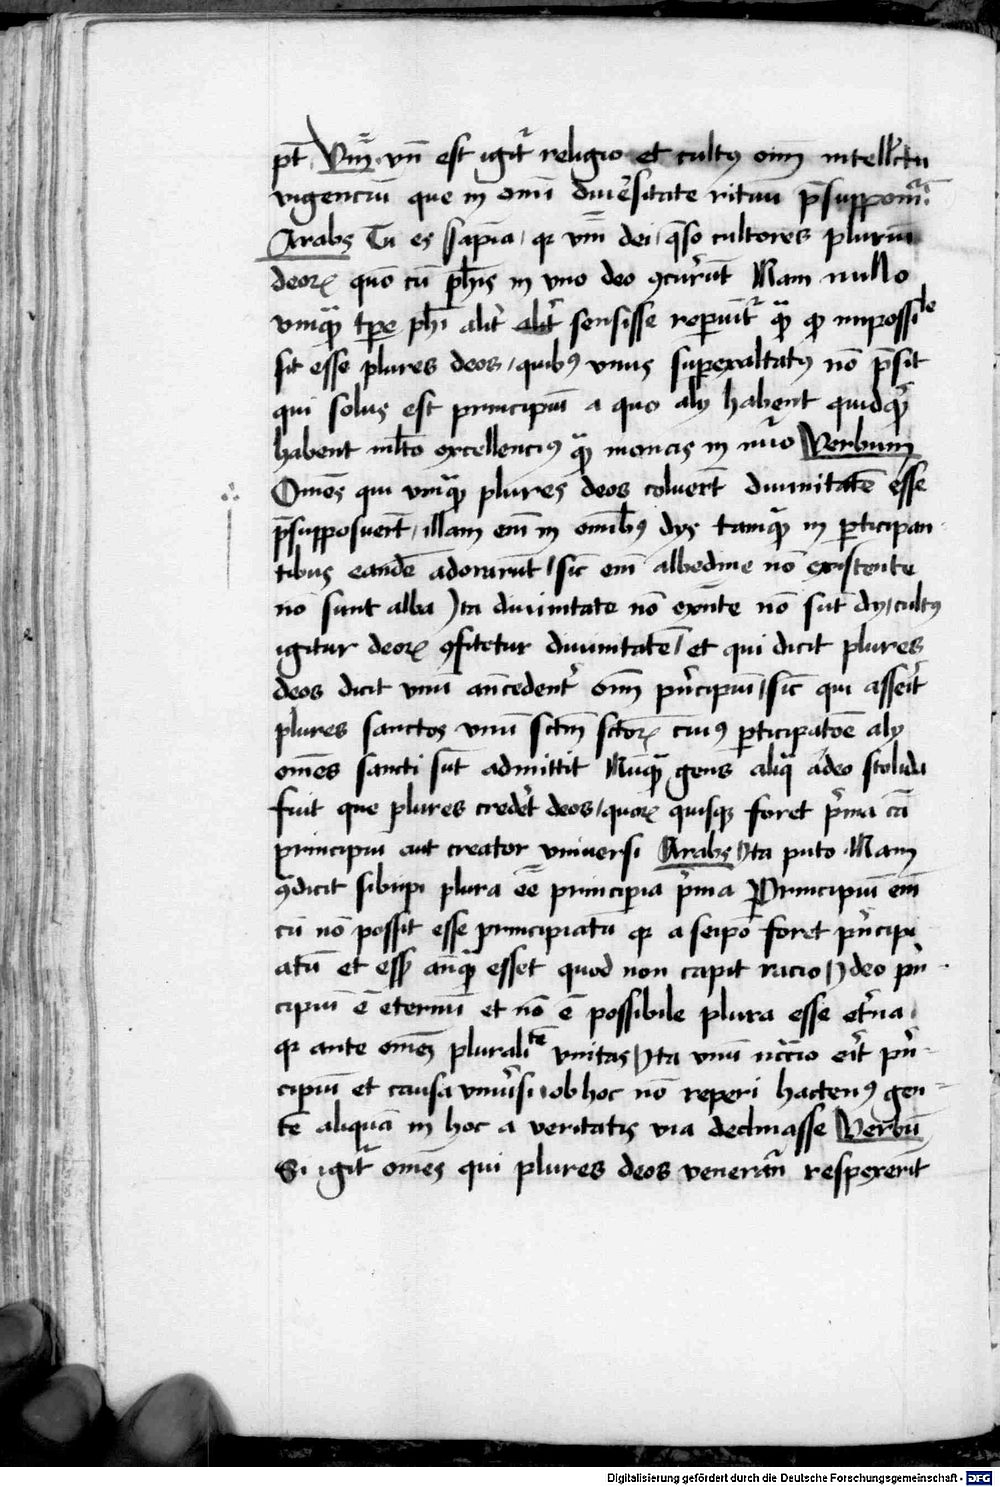 pt̄ Vm̄ vn̄ est igit᷑ religio et cultꝰ oim̄ intellc̄tu
vigenciū que in om̄i diu̾sitate rituū p̄supponit᷑
Arabs Tu es sapīa qr vm̄ dei q̄so cultores plurium
deoꝝ quō cū ph̄is in vno deo ꝯcurrūt Nam nullo
vmqꝫ tꝑe ph̄i alit̾ alit̾ sensisse reperiūt᷑ qꝫ qꝫ impossile
sit esse plures deos quibꝰ vnus superexaltatꝰ nō p̄sit
qui solus est principiū a quo aly habent quidqꝫ
habent ml̄to excellenciꝰ qꝫ monas in nūo Verbum
Om̄es qui vmqꝫ plures deos coluer̄t diuinitatē esse
p̄supposuer̄t illam em̄ in om̄ibꝰ dys tamqꝫ in ꝑticipan
tibus eandē adorarūt sic̄ em̄ albedine nō existente
nō sunt alba Ita diuinitate nō exn̄te nō sūt dy cultꝰ
igitur deoꝝ ꝯfitetur diuinitatē et qui dicit plures
deos dicit vnū an̄cedent̾ om̄ pn̾cipiū sic̄ qui asserit̾
plures sanctos vnū sctm̄ sctoꝝ cuiꝰ ꝑticipatōe aly
om̄es sancti sūt admittit Nūqꝫ gens aliq̄ adeo stolida
fuit que plures crede̾t deos quoꝝ quisqꝫ foret p̾ma cā
principiū aut creator vniuersi Arabs Ita puto Nam
ꝯdicit sibijpi plura eē principia p̾ma Principiū em̄
cū nō possit esse principiatū qr a seipō foret pn̾cipi
atū et esse anqꝫ esset quod non capit racio Ideo pn̾
cipiū ē eternū et nō ē possibile plura esse et̾na
qr ante om̄em pluralitē vnitas Ita vnū nc̄cio er̾it pn̾
cipiū et causa vniu̾si ob hoc nō reperi hactenꝰ gen
tē aliquā in hoc a veritatis via declinasse Verbū
Si igit᷑ om̄es qui plures deos venerān̄ respexerīt
Digitalisierung gefördert durch die Deutsche Forschungsgemeinschaft - DFG